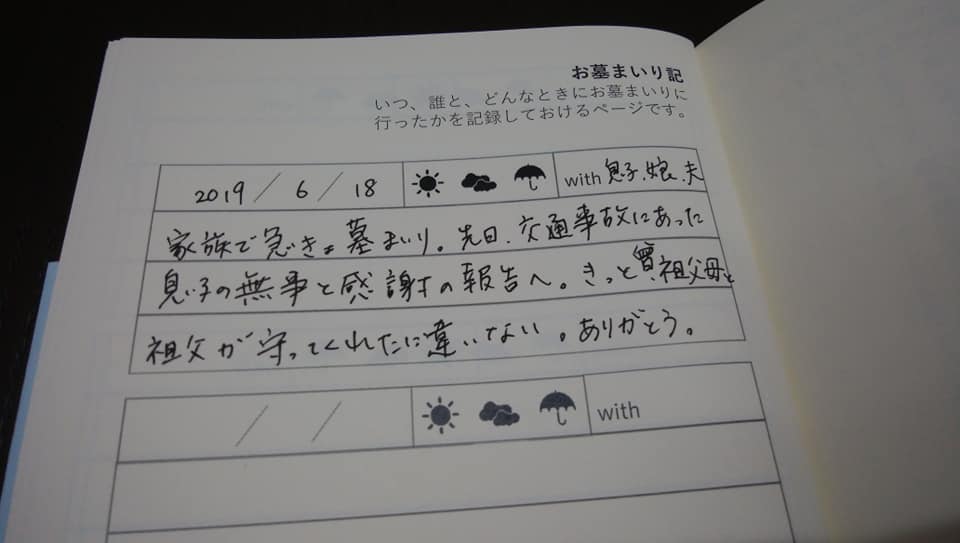 お墓まいり記
いつ、誰と、どんなときにお墓まいりに
行ったかを記録しておけるページです。
2019 / 6 / 18 with 息子、娘、夫
家族で急きょ墓まいり。先日、交通事故にあった
息子の無事と感謝の報告へ。きっと曽祖父母と
祖父が守ってくれたに違いない。ありがとう。
/ / with